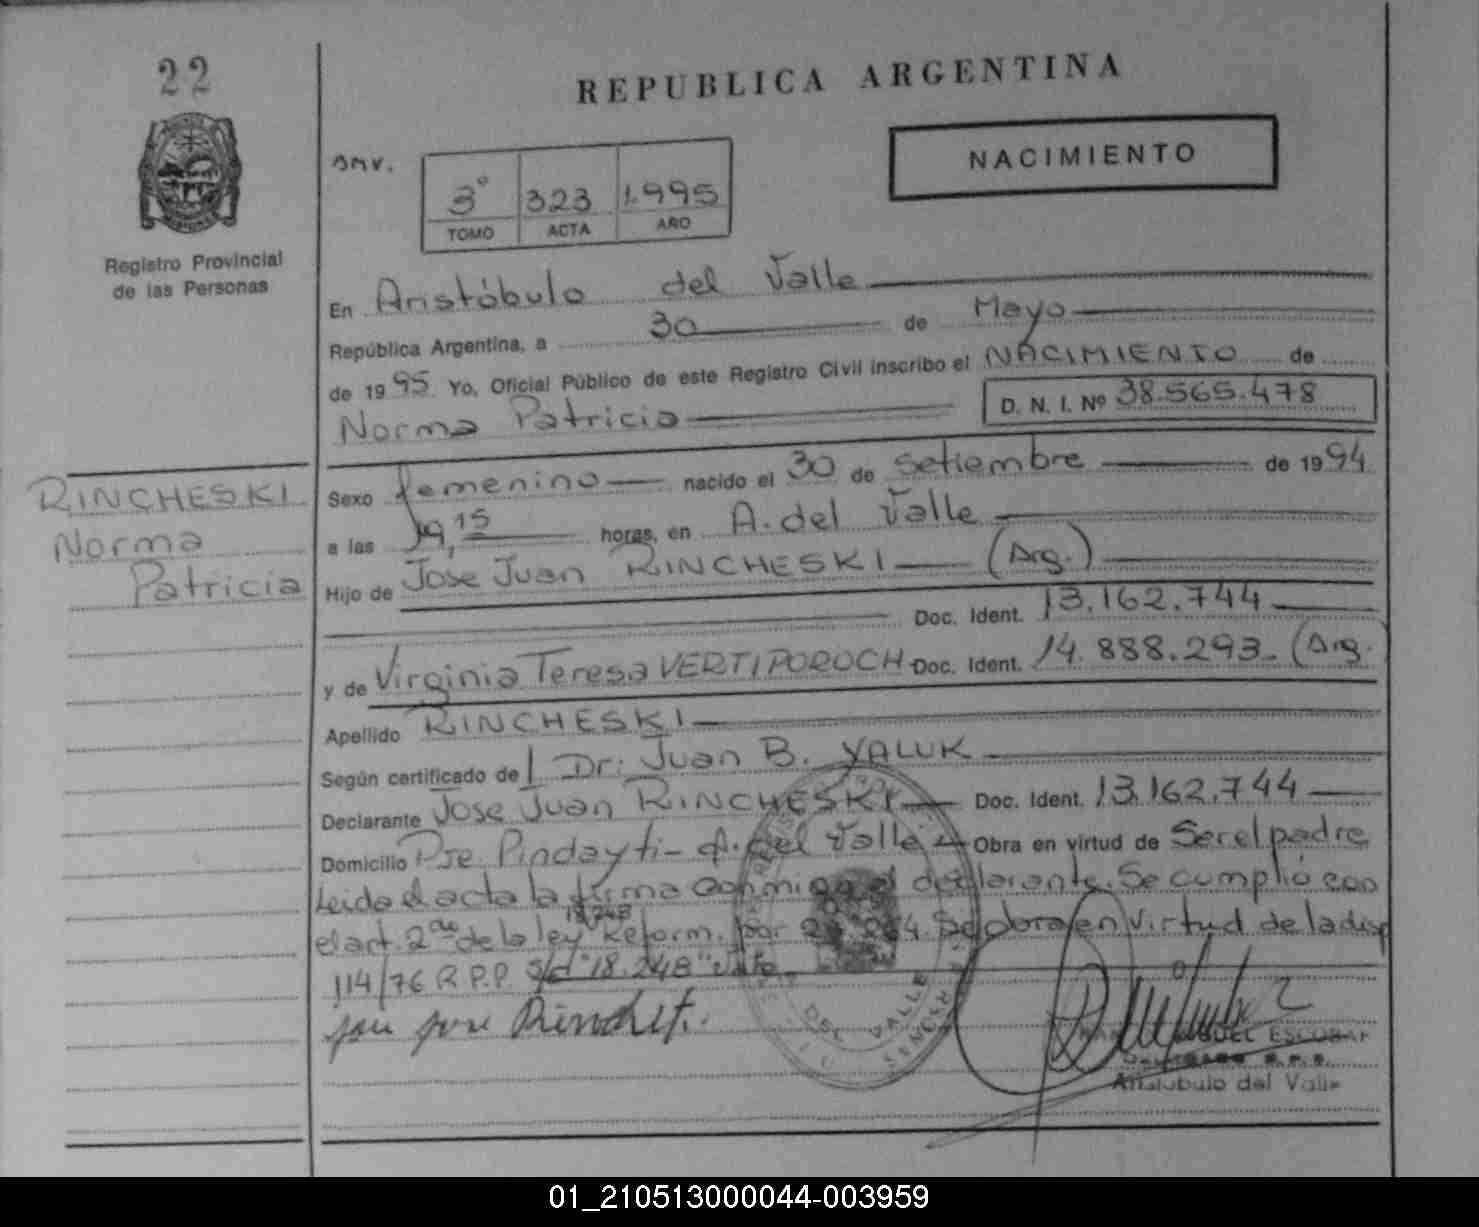 22
REPUBLICA ARGENTINA
NACIMIENTO
Registro Provincial
de las Personas
3° 323 1.995
TOMO ACTA AÑO
En Aristóbulo del Valle
República Argentina, a 30 de Mayo
de 1995 Yo, Oficial Público de este Registro Civil inscribo el NACIMIENTO de
Norma Patricia D. N. I. Nº 38.565.478
RINCHESKI
Norma
Patricia
Sexo femenino nacido el 30 de setiembre de 1994
a las 19,15 horas, en A. del Valle
Hijo de Jose Juan RINCHESKI (Arg.)
Doc. Ident. 13.162.744
y de Virginia Teresa VERTIPOROCH Doc. Ident. 14.888.293 (Arg.
Apellido RINCHESKI
Según certificado de Dr: Juan B. YALUK
Declarante Jose Juan RINCHESKI Doc. Ident. 13.162.744
Domicilio Pje Pindayti - A. del Valle Obra en virtud de Ser el padre
Leida el acta la firma conmigo el declarante. Se cumplió con
18.248
el art. 2do de la ley Reform. por Se obra en virtud de la disp
114/76 R.P.P. S/d "18.248" Vale
DEL VALLE
MIGUEL ESCOBAR
Aristobulo del Valle
01_210513000044-003959